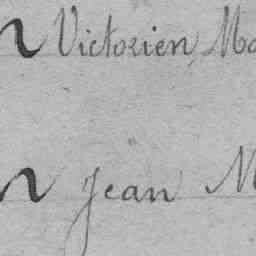 n Victorien Ma
n Jean M